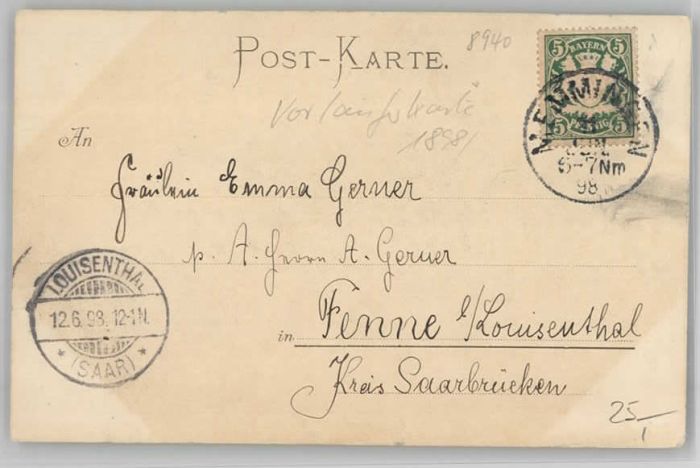 POST-KARTE.
8940
BAYERN
5 5
5 5
PFENNIG
MEMMINGEN
JUN.
6-7 Nm
98
Vorläuferkarte
1898!
An
Fräulein Emma Gerner
p. A. Herrn A. Gerner
in Fenne b/Louisenthal
Kreis Saarbrücken
LOUISENTHAL
12.6.98. 12-1N.
* (SAAR) *
25,-